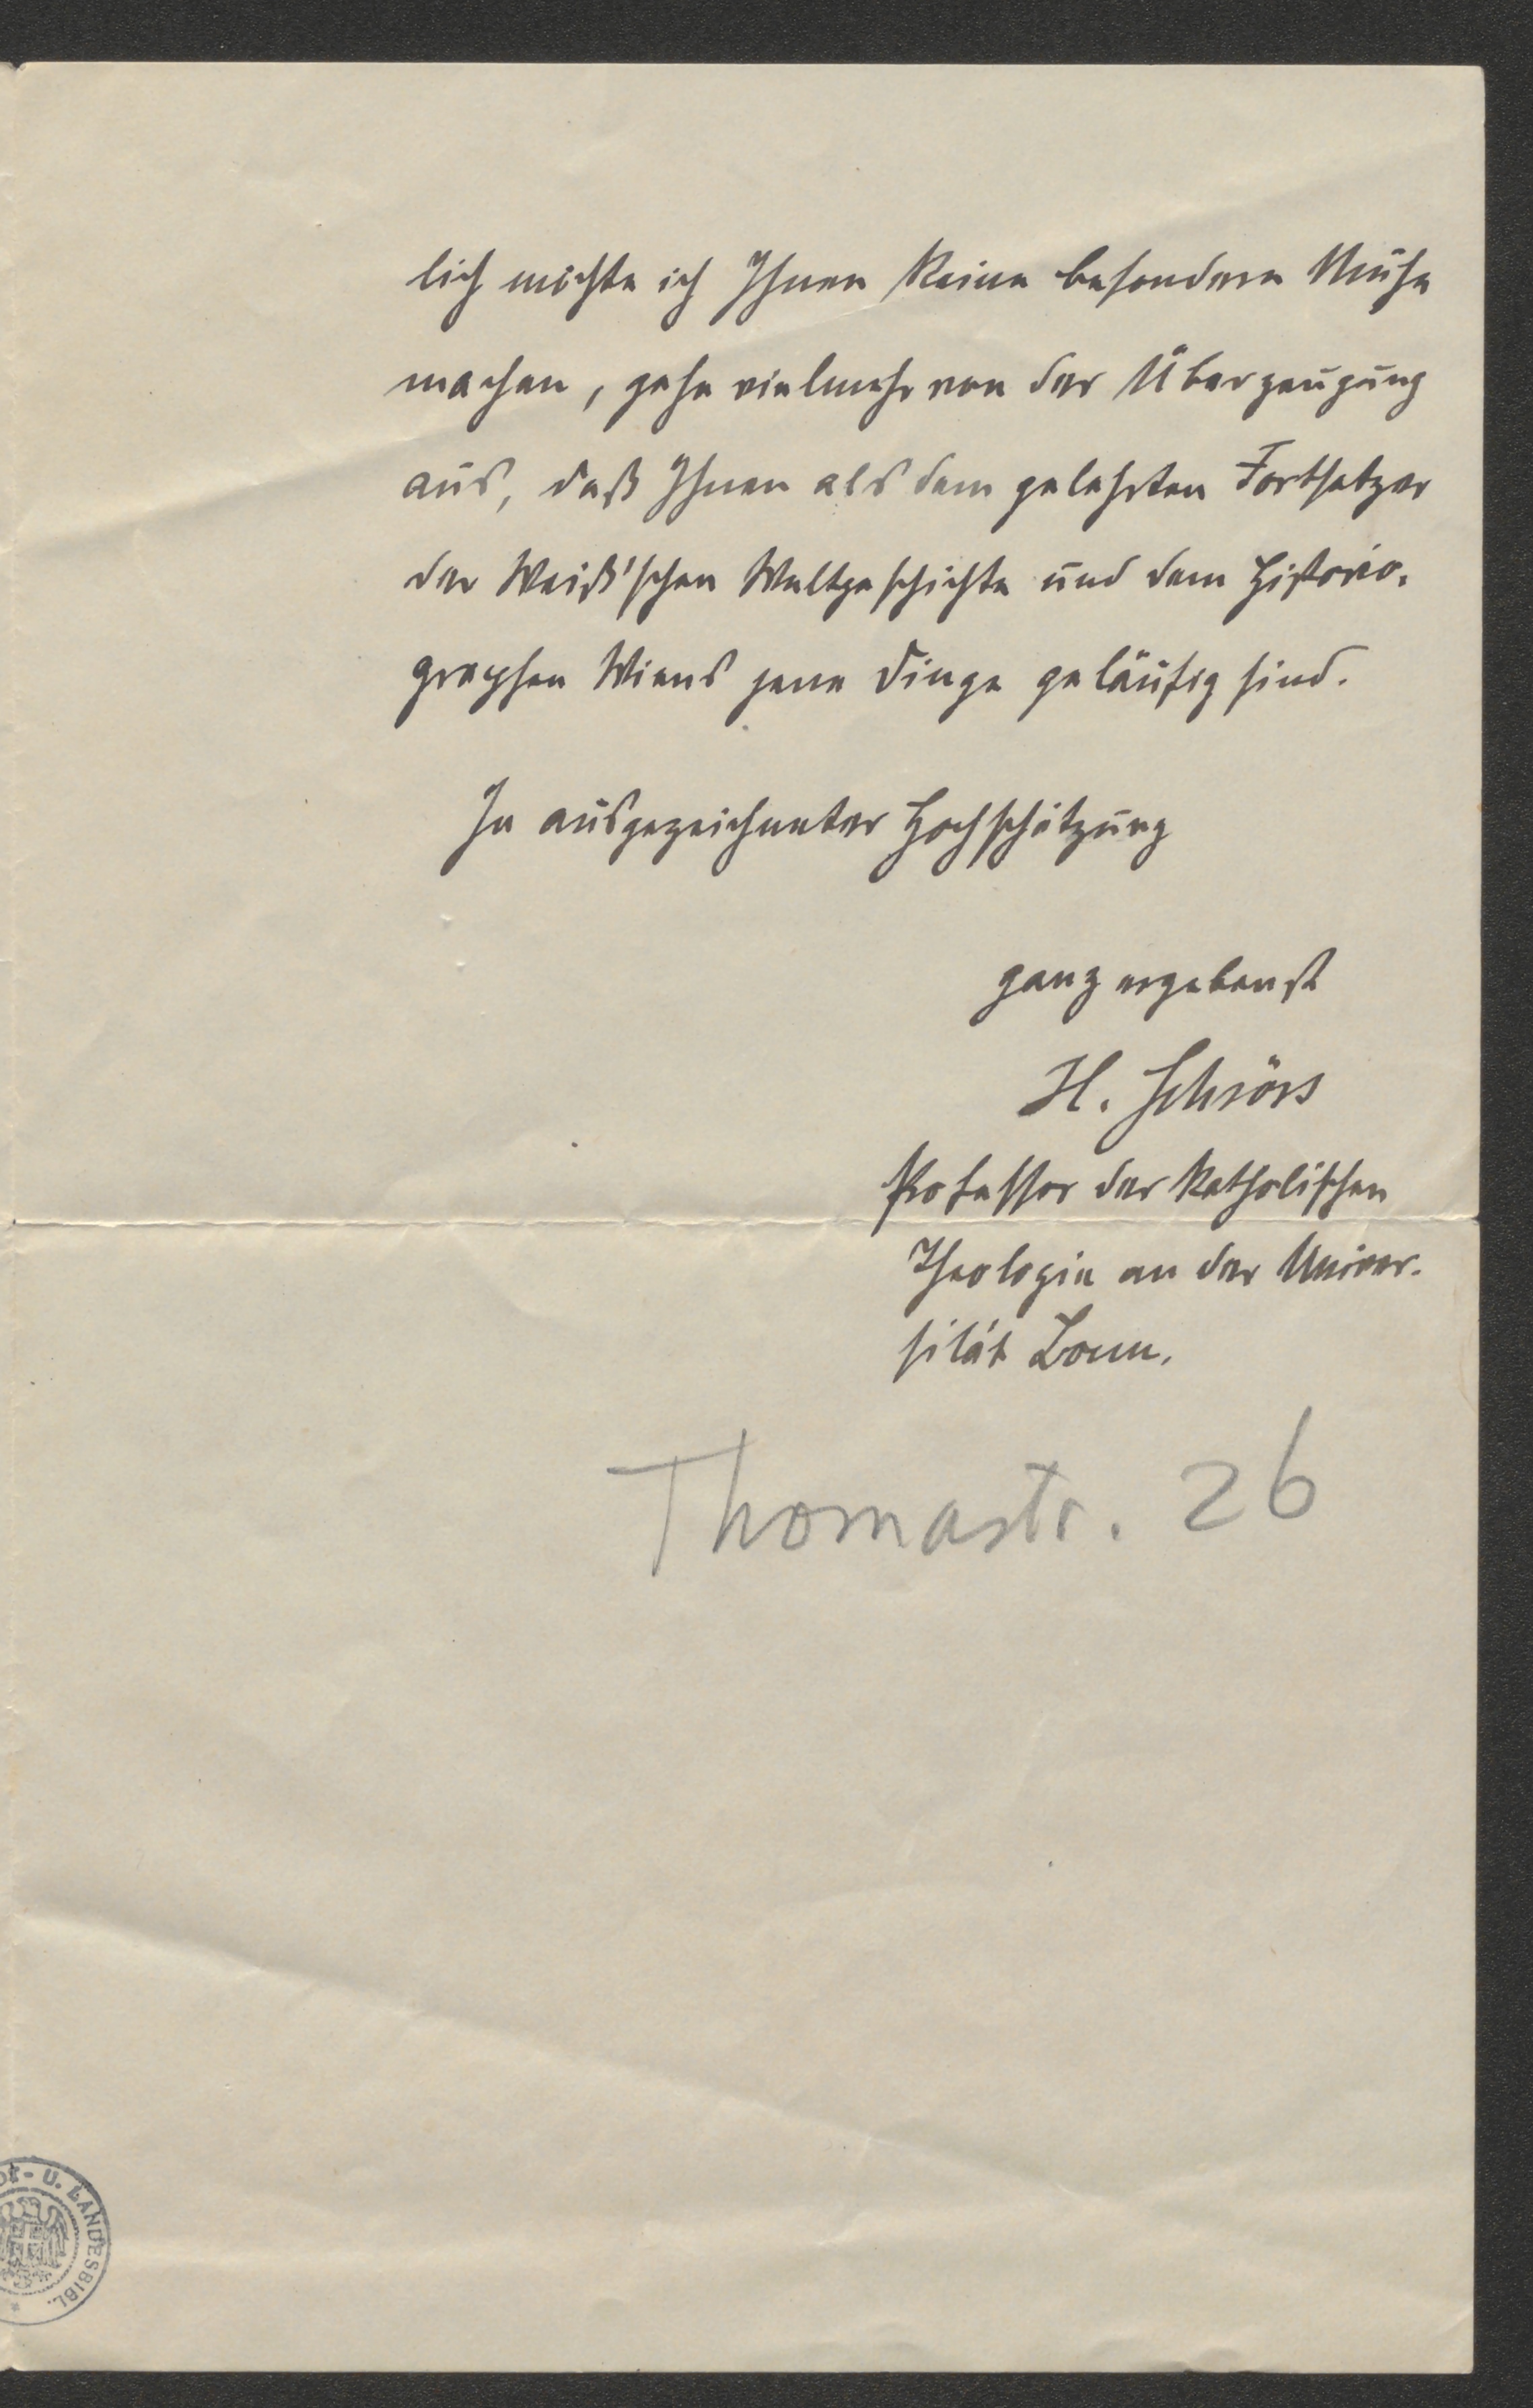 lich möchte ich Ihnen keine besondere Mühe
machen, gehe vielmehr von der Überzeugung
aus, daß Ihnen als dem gelehrten Fortsetzer
der Weiß'schen Weltgeschichte und dem Historio-
graphen Wiens jene Dinge geläufig sind.
In ausgezeichneter Hochschätzung
ganz ergebenst
H. Schrörs
Professor der katholischen
Theologie an der Univer-
sität Bonn.
Thomastr. 26
- U. LANDESBIBL.